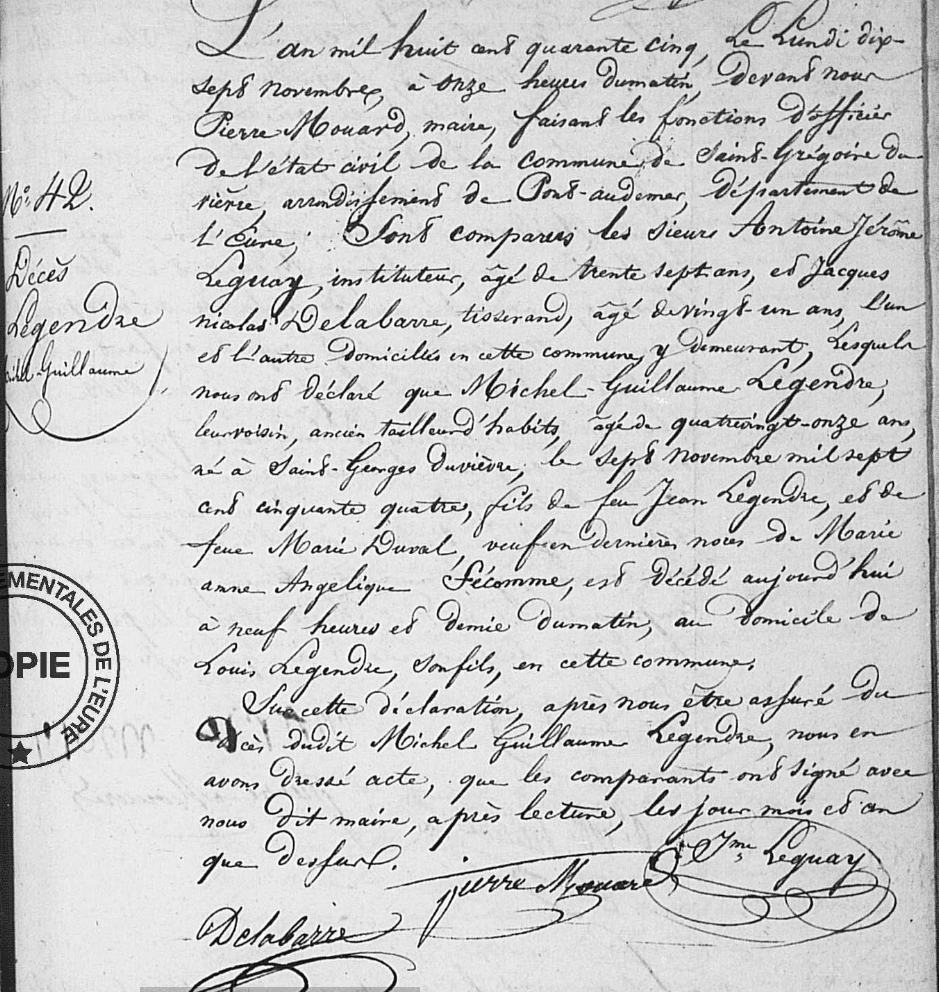 L'an mil huit cent quarante cinq, Le Lundi dix-
sept novembre, à onze heures dumatin, devant nous
Pierre Mouard, maire, faisant les fonctions d'officier
de l'état civil de la commune de Saint-Grégoire du
vièvre, arrondissement de Pont-audemer, département de
l'Eure; Sont comparus les sieurs Antoine Jérôme
Leguay, instituteur, âgé de trente sept ans, et Jacques
nicolas Delabarre, tisserand, âgé de vingt-un ans, l'un
et l'autre domiciliés en cette commune, y demeurant, Lesquels
nous ont déclaré que Michel-Guillaume Légendre,
leur voisin, ancien tailleur d'habits, âgé de quatrevingt-onze ans,
né à Saint-Georges Duvièvre, le sept Novembre mil sept
cent cinquante quatre, fils de feu Jean Legendre, et de
feue Marie Duval, veuf en dernières noces de Marie
anne Angelique Fécomme, est décédé aujourd'hui
à neuf heures et demie dumatin, au domicile de
Louis Legendre, son fils, en cette commune.
Sur cette déclaration, après nous être assuré du
décès dudit Michel Guillaume Legendre, nous en
avons dressé acte, que les comparants ont signé avec
nous dit maire, après lecture, les jour mois et an
que dessus.
pierre Mouard
Jme Leguay
Delabarre
N° 42.
Décès
Légendre
Michel-Guillaume
EMENTALES DE L'EURE
OPIE